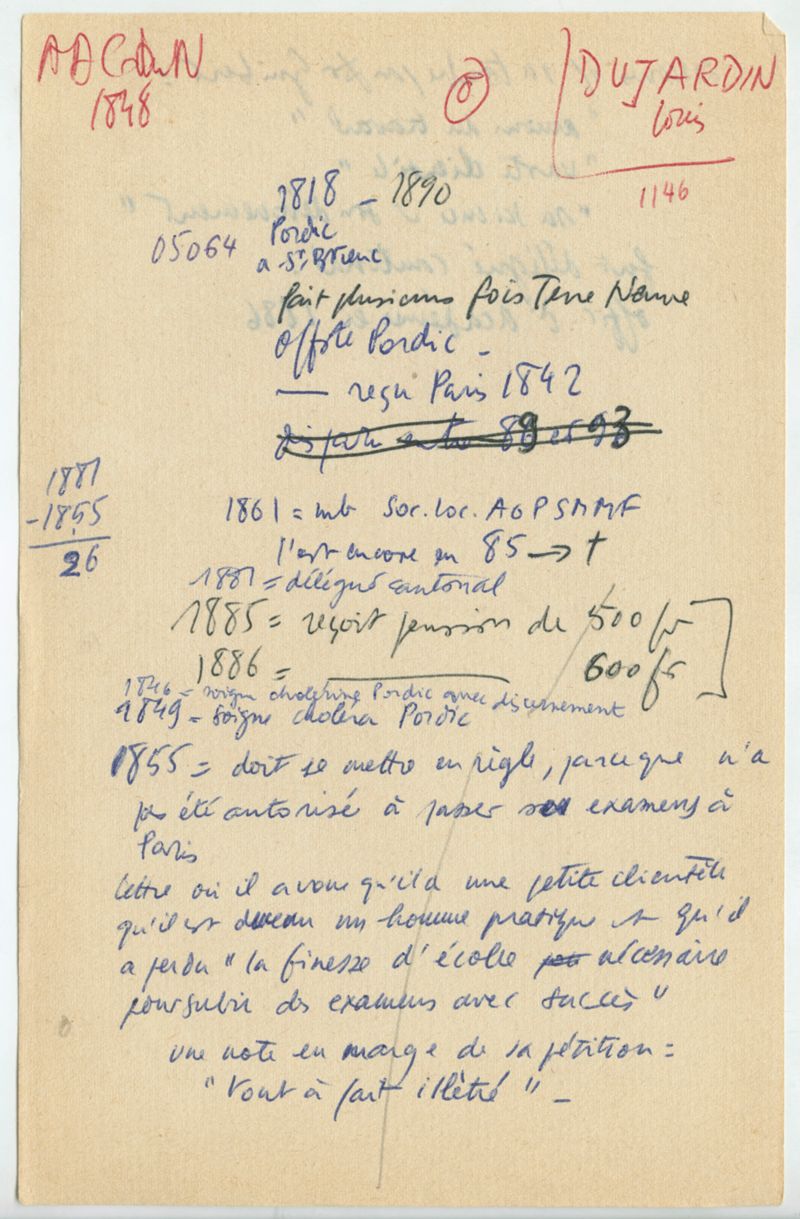 1848
DUJARDIN
Louis
1146
1818 – 1890
Pordic
05064
a St Brieuc
fait plusieurs fois Terre Neuve
Offste Pordic –
— reçu Paris 1842
disparu entre 89 et 93
1881
-1855
26
1861 = mb Soc. loc. AGPSMMF
l'est encore en 85 → †
1881 = délégué cantonal
1885 = reçoit pension de 500 fr
1886 = ——— 600 fr
1846 = soigne cholérine Pordic avec discernement
1849 = soigne choléra Pordic
1855 = doit se mettre en règle, parce que n'a
pas été autorisé à passer ses examens à
Paris
lettre où il avoue qu'il a une petite clientèle
qu'il est devenu un homme pratique et qu'il
a perdu "la finesse d'école nécessaire
pour subir des examens avec succès"
une note en marge de sa pétition =
"Tout à fait illétré" –